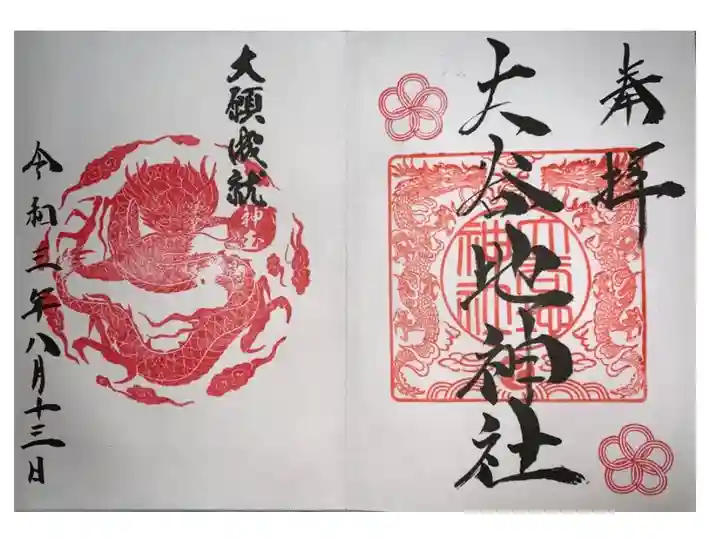 奉拝
大谷地神社
大願成就
神玉
令和三年八月十三日